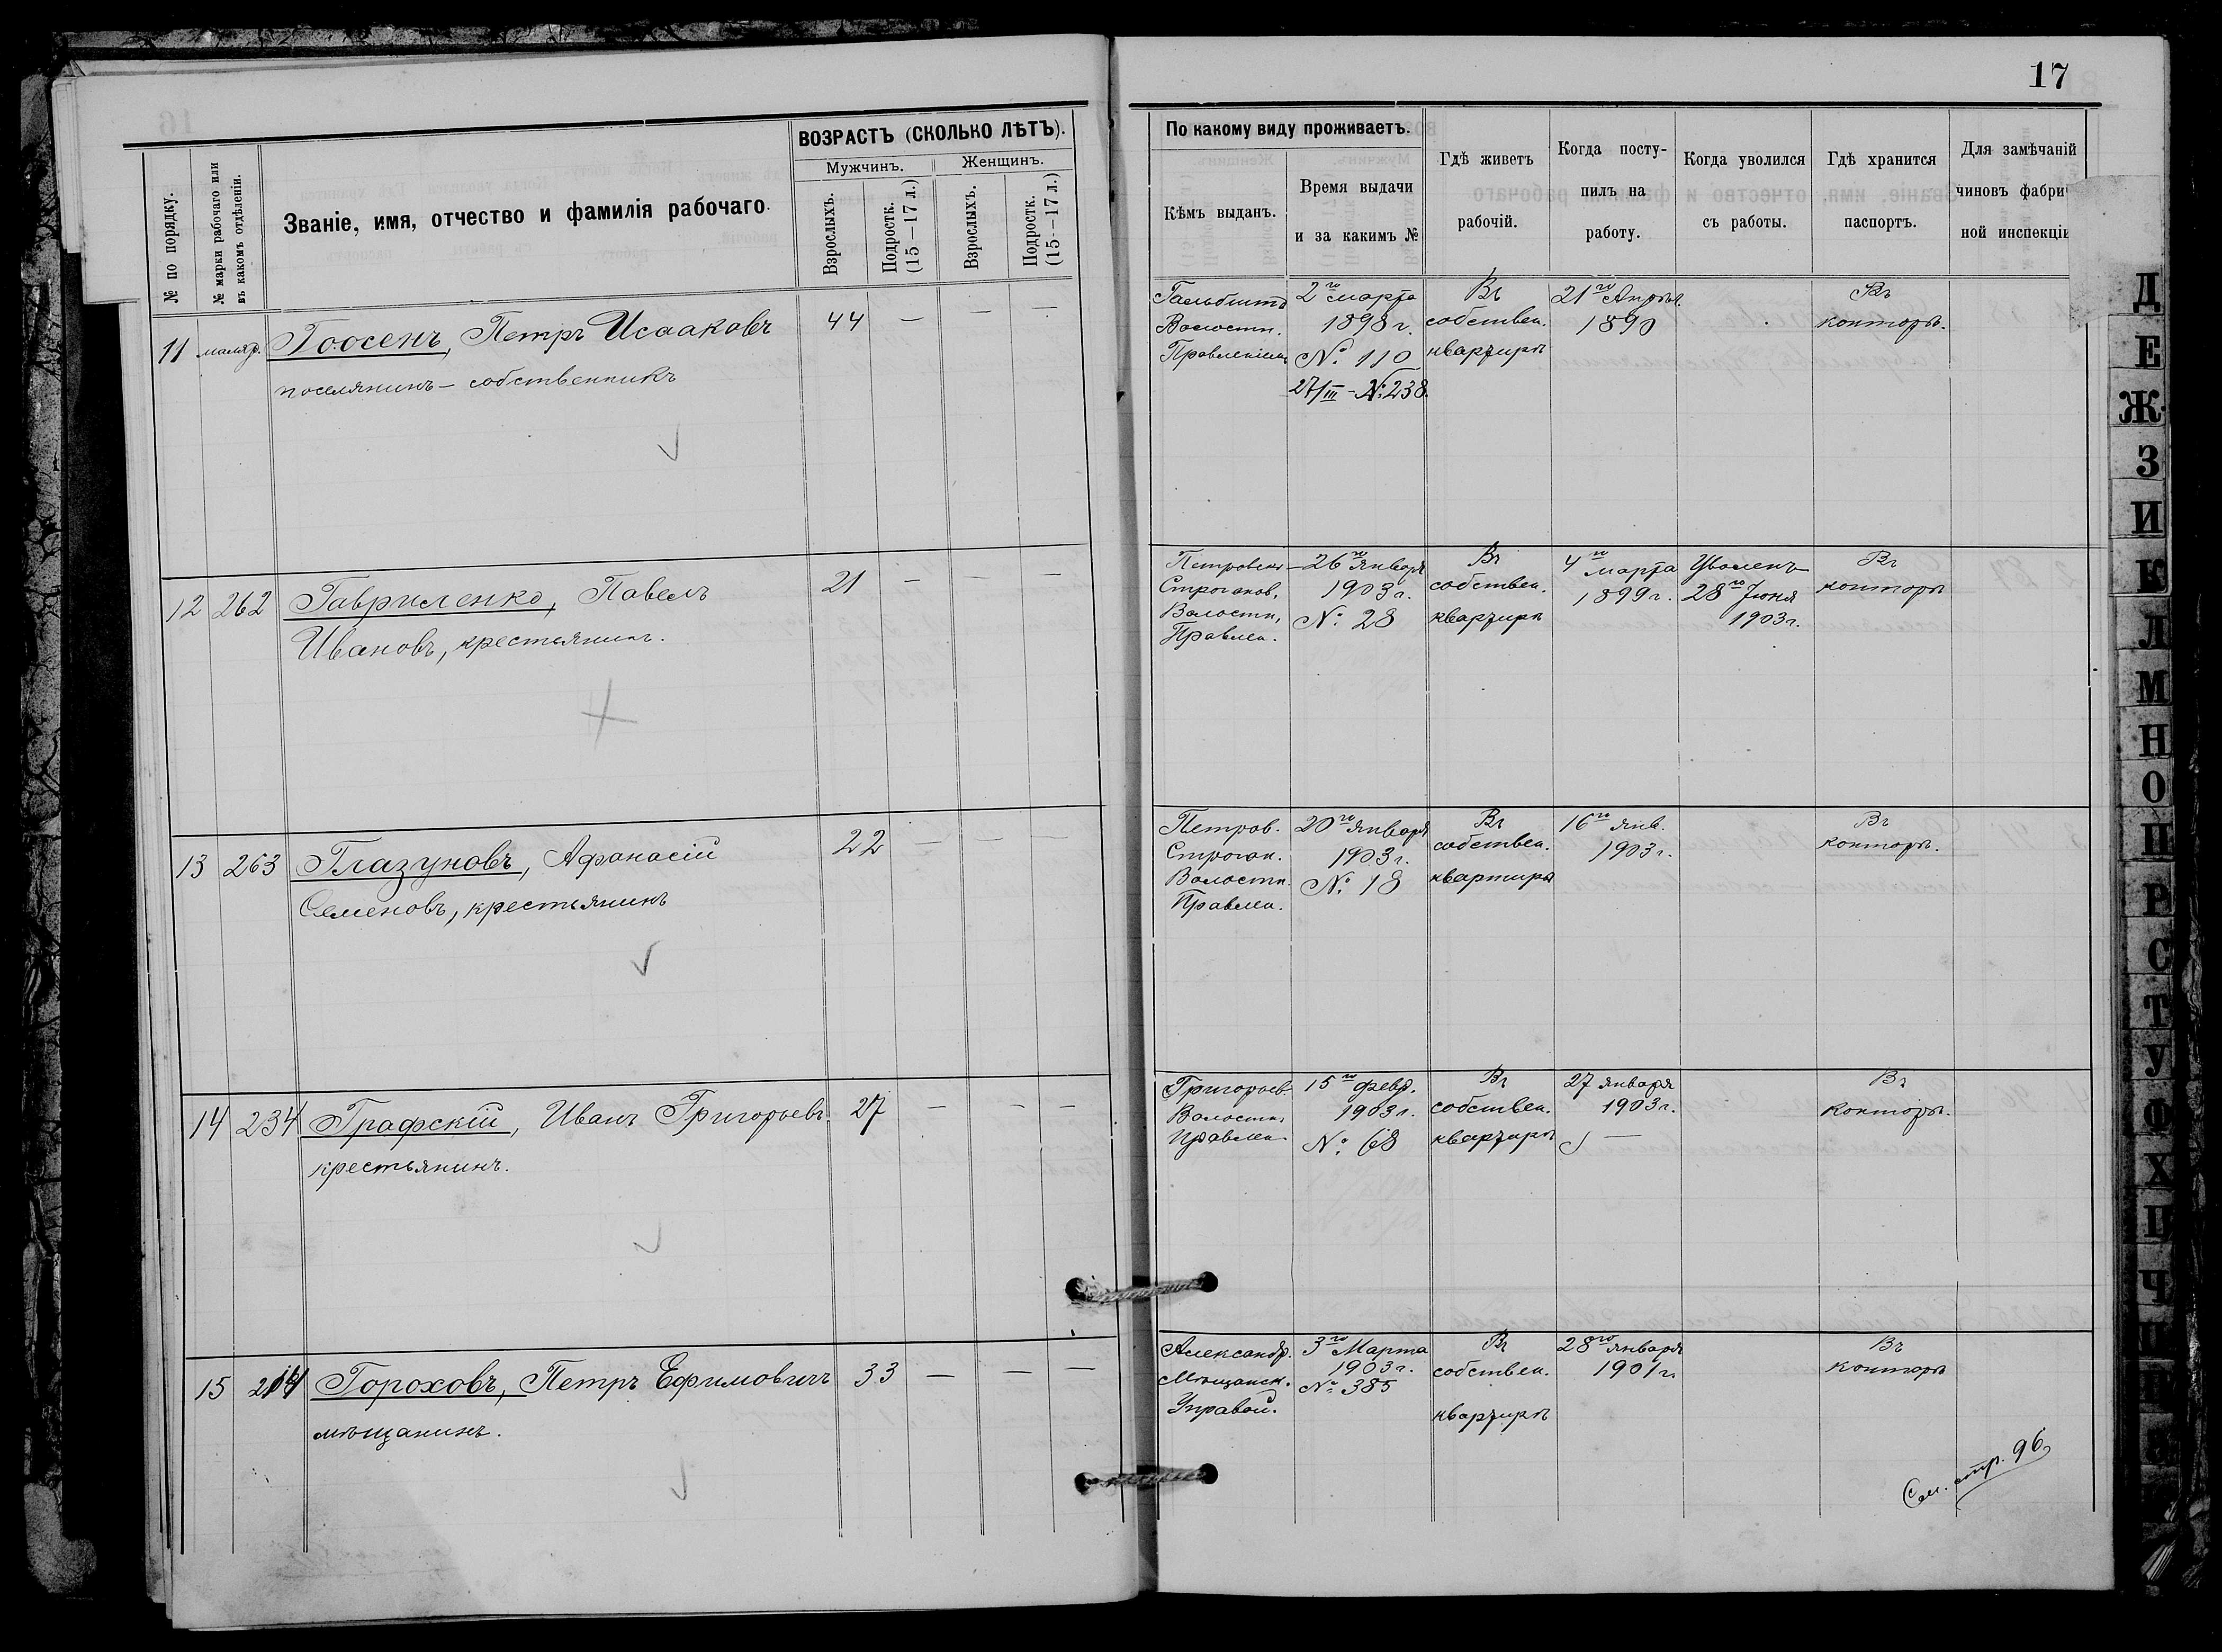 17
№ по порядку.
№ марки рабочаго или
въ какомъ отдѣленіи.
Званіе, имя, отчество и фамилія рабочаго.
ВОЗРАСТЪ (СКОЛЬКО ЛѢТЪ).
Мужчинъ.
Женщинъ.
Взрослыхъ.
Подростк.
(15—17 л.)
Взрослыхъ.
Подростк.
(15—17 л.)
По какому виду проживаетъ.
Кѣмъ выданъ.
Время выдачи
и за какимъ №
Гдѣ живетъ
рабочій.
Когда посту-
пилъ на
работу.
Когда уволился
съ работы.
Гдѣ хранится
паспортъ.
Для замѣчаній
чиновъ фабрич
ной инспекціи
11 маляр. Гоосенъ, Петръ Исааковъ 44 — — —
поселянинъ — собственникъ
Гальбшт.
Волостн.
Правленіемъ
2го марта
1898 г.
№ 110
27/III - №238.
Въ
собствен.
квартирѣ
21го Апрѣл.
1890
Въ
конторѣ.
12 262 Гавриленко, Павелъ 21 — — —
Ивановъ, крестьянинъ.
Петровск-
Строганов.
Волостн.
Правлен.
26го января
1903 г.
№ 28
Въ
собствен.
квартирѣ
4го марта
1899 г.
Уволенъ
28го Іюня
1903 г.
Въ
конторѣ
13 263 Глазуновъ, Афанасій 22 — — —
Семеновъ, крестьянинъ
Петров.
Строган.
Волостн.
Правлен.
20го января
1903 г.
№ 18
Въ
собствен.
квартирѣ
16го янв.
1903 г.
Въ
конторѣ.
14 234 Графскій, Иванъ Григорьевъ 27 — — —
крестьянинъ.
Григорьев.
Волостн.
Правлен.
15го февр.
1903 г.
№ 68
Въ
собствен.
квартирѣ
27 января
1903 г.
Въ
конторѣ.
15 214 Гороховъ, Петръ Ефимовичъ 33 — — —
мѣщанинъ.
Александр.
Мѣщанск.
Управой.
3го Марта
1903 г.
№ 385
Въ
собствен.
квартирѣ
28го января
1901 г.
Въ
конторѣ
См. стр. 96
Д
Е
Ж
З
И
К
Л
М
Н
О
П
Р
С
Т
У
Ф
Х
Ц
Ч